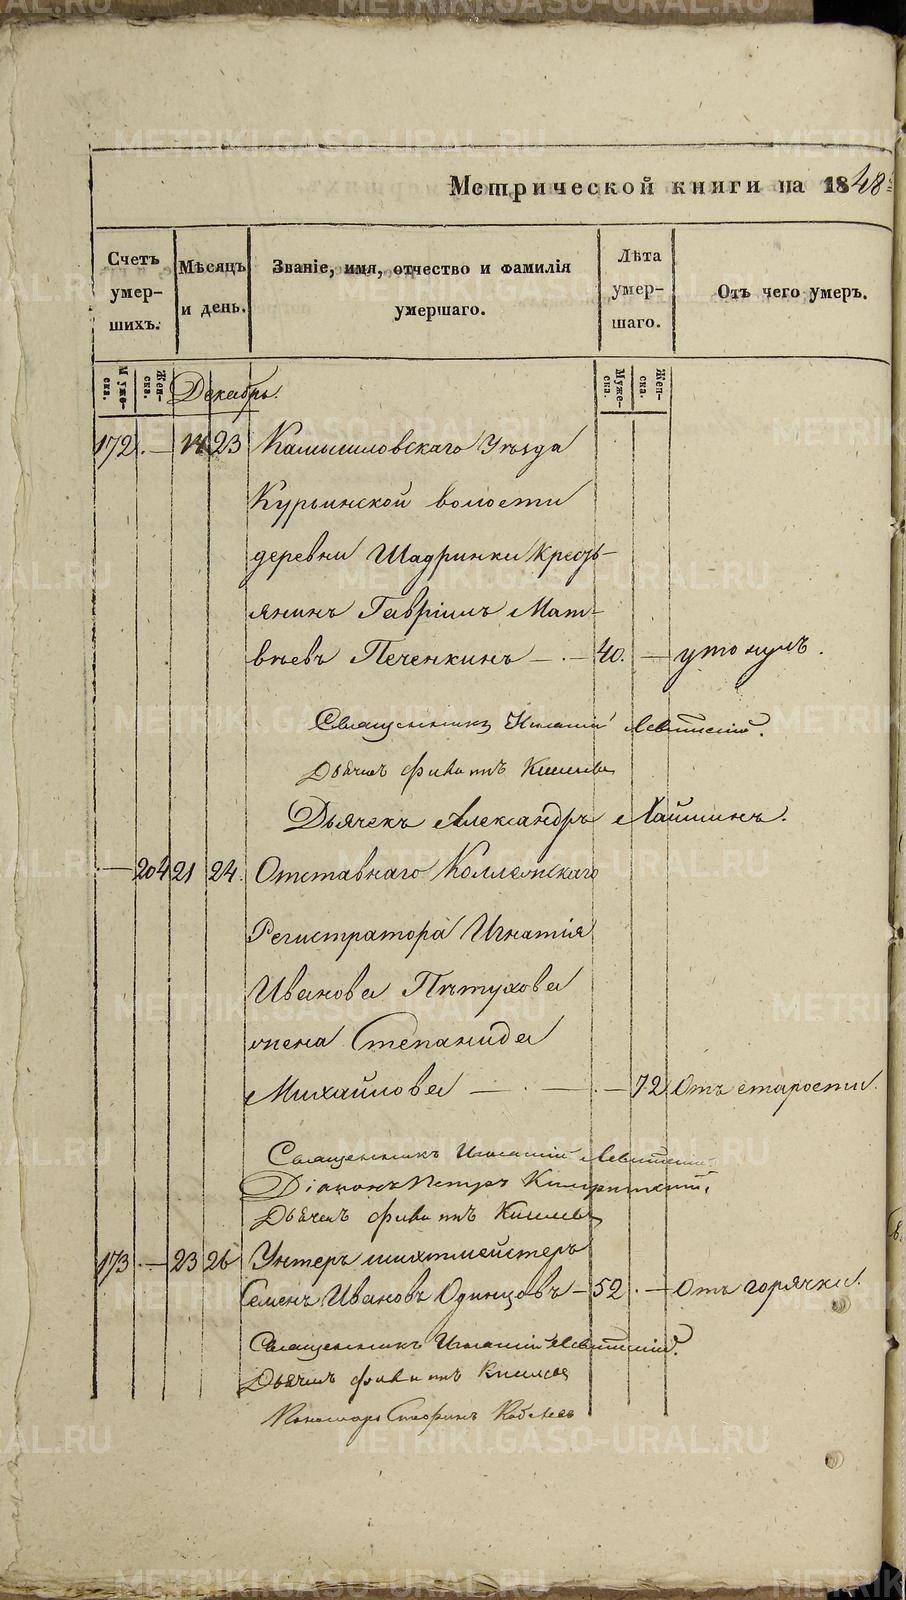 Метрической книги на 1848
Счетъ умершихъ.
Мѣсяцъ и день.
Званіе, имя, отчество и фамилія умершаго.
Лѣта умершаго.
Отъ чего умеръ.
Мужеска. Женска. Декабрь. Мужеска. Женска.
172 . — 14 23 Камышловскаго Уѣзда
Курьинской волости
деревни Шадринки Кресть-
янинъ Гавріилъ Мат-
вѣевъ Печенкинъ — . — 40. — утонулъ.
Священникъ Игнатій Левитскій.
Дьячекъ Киселевъ
Дьячекъ Александръ Лаишинъ.
. — 204 21 24. Отставнаго Коллежскаго
Регистратора Игнатія
Иванова Пѣтухова
жена Степанида
Михайлова — . — . — 72 Отъ старости.
Священникъ Игнатій Левитскій
Діаконъ Петръ
Дьячекъ Киселевъ
173 . — 23 26 Унтеръ шихтмейстеръ
Семенъ Ивановъ Одинцовъ — 52 . — Отъ горячки.
Священникъ Игнатій Левитскій.
Дьячекъ Киселевъ
Пономарь
METRIKI.GASO-URAL.RU